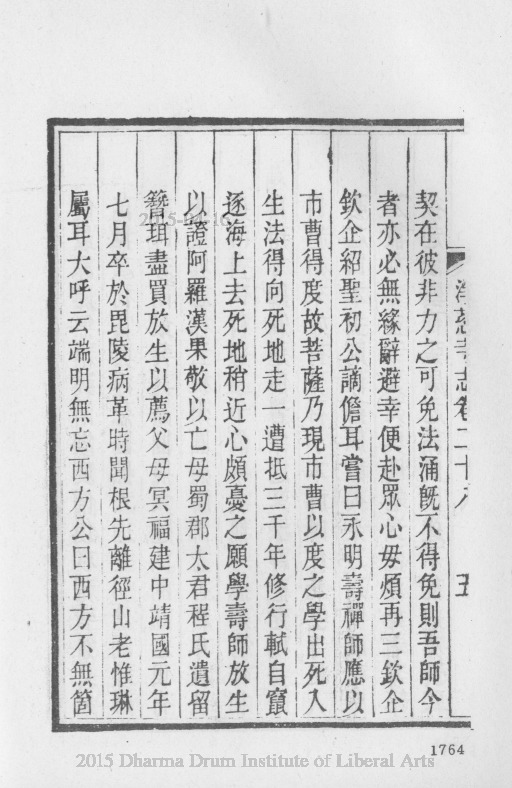 淨慈寺志卷二十八
五
契在彼非力之可免法涌旣不得免則吾師今
者亦必無緣辭避幸便赴眾心毋煩再三欽企
欽企紹聖初公謫儋耳嘗曰永明壽禪師應以
市曹得度故菩薩乃現市曹以度之學出死入
生法得向死地走一遭抵三千年修行軾自竄
逐海上去死地稍近心頗憂之願學壽師放生
以證阿羅漢果敬以亡母蜀郡太君程氏遺留
簪珥盡買放生以薦父母冥福建中靖國元年
七月卒於毘陵病革時聞根先離徑山老惟琳
屬耳大呼云端明無忘西方公曰西方不無箇
2015-04-16
1764
2015 Dharma Drum Institute of Liberal Arts